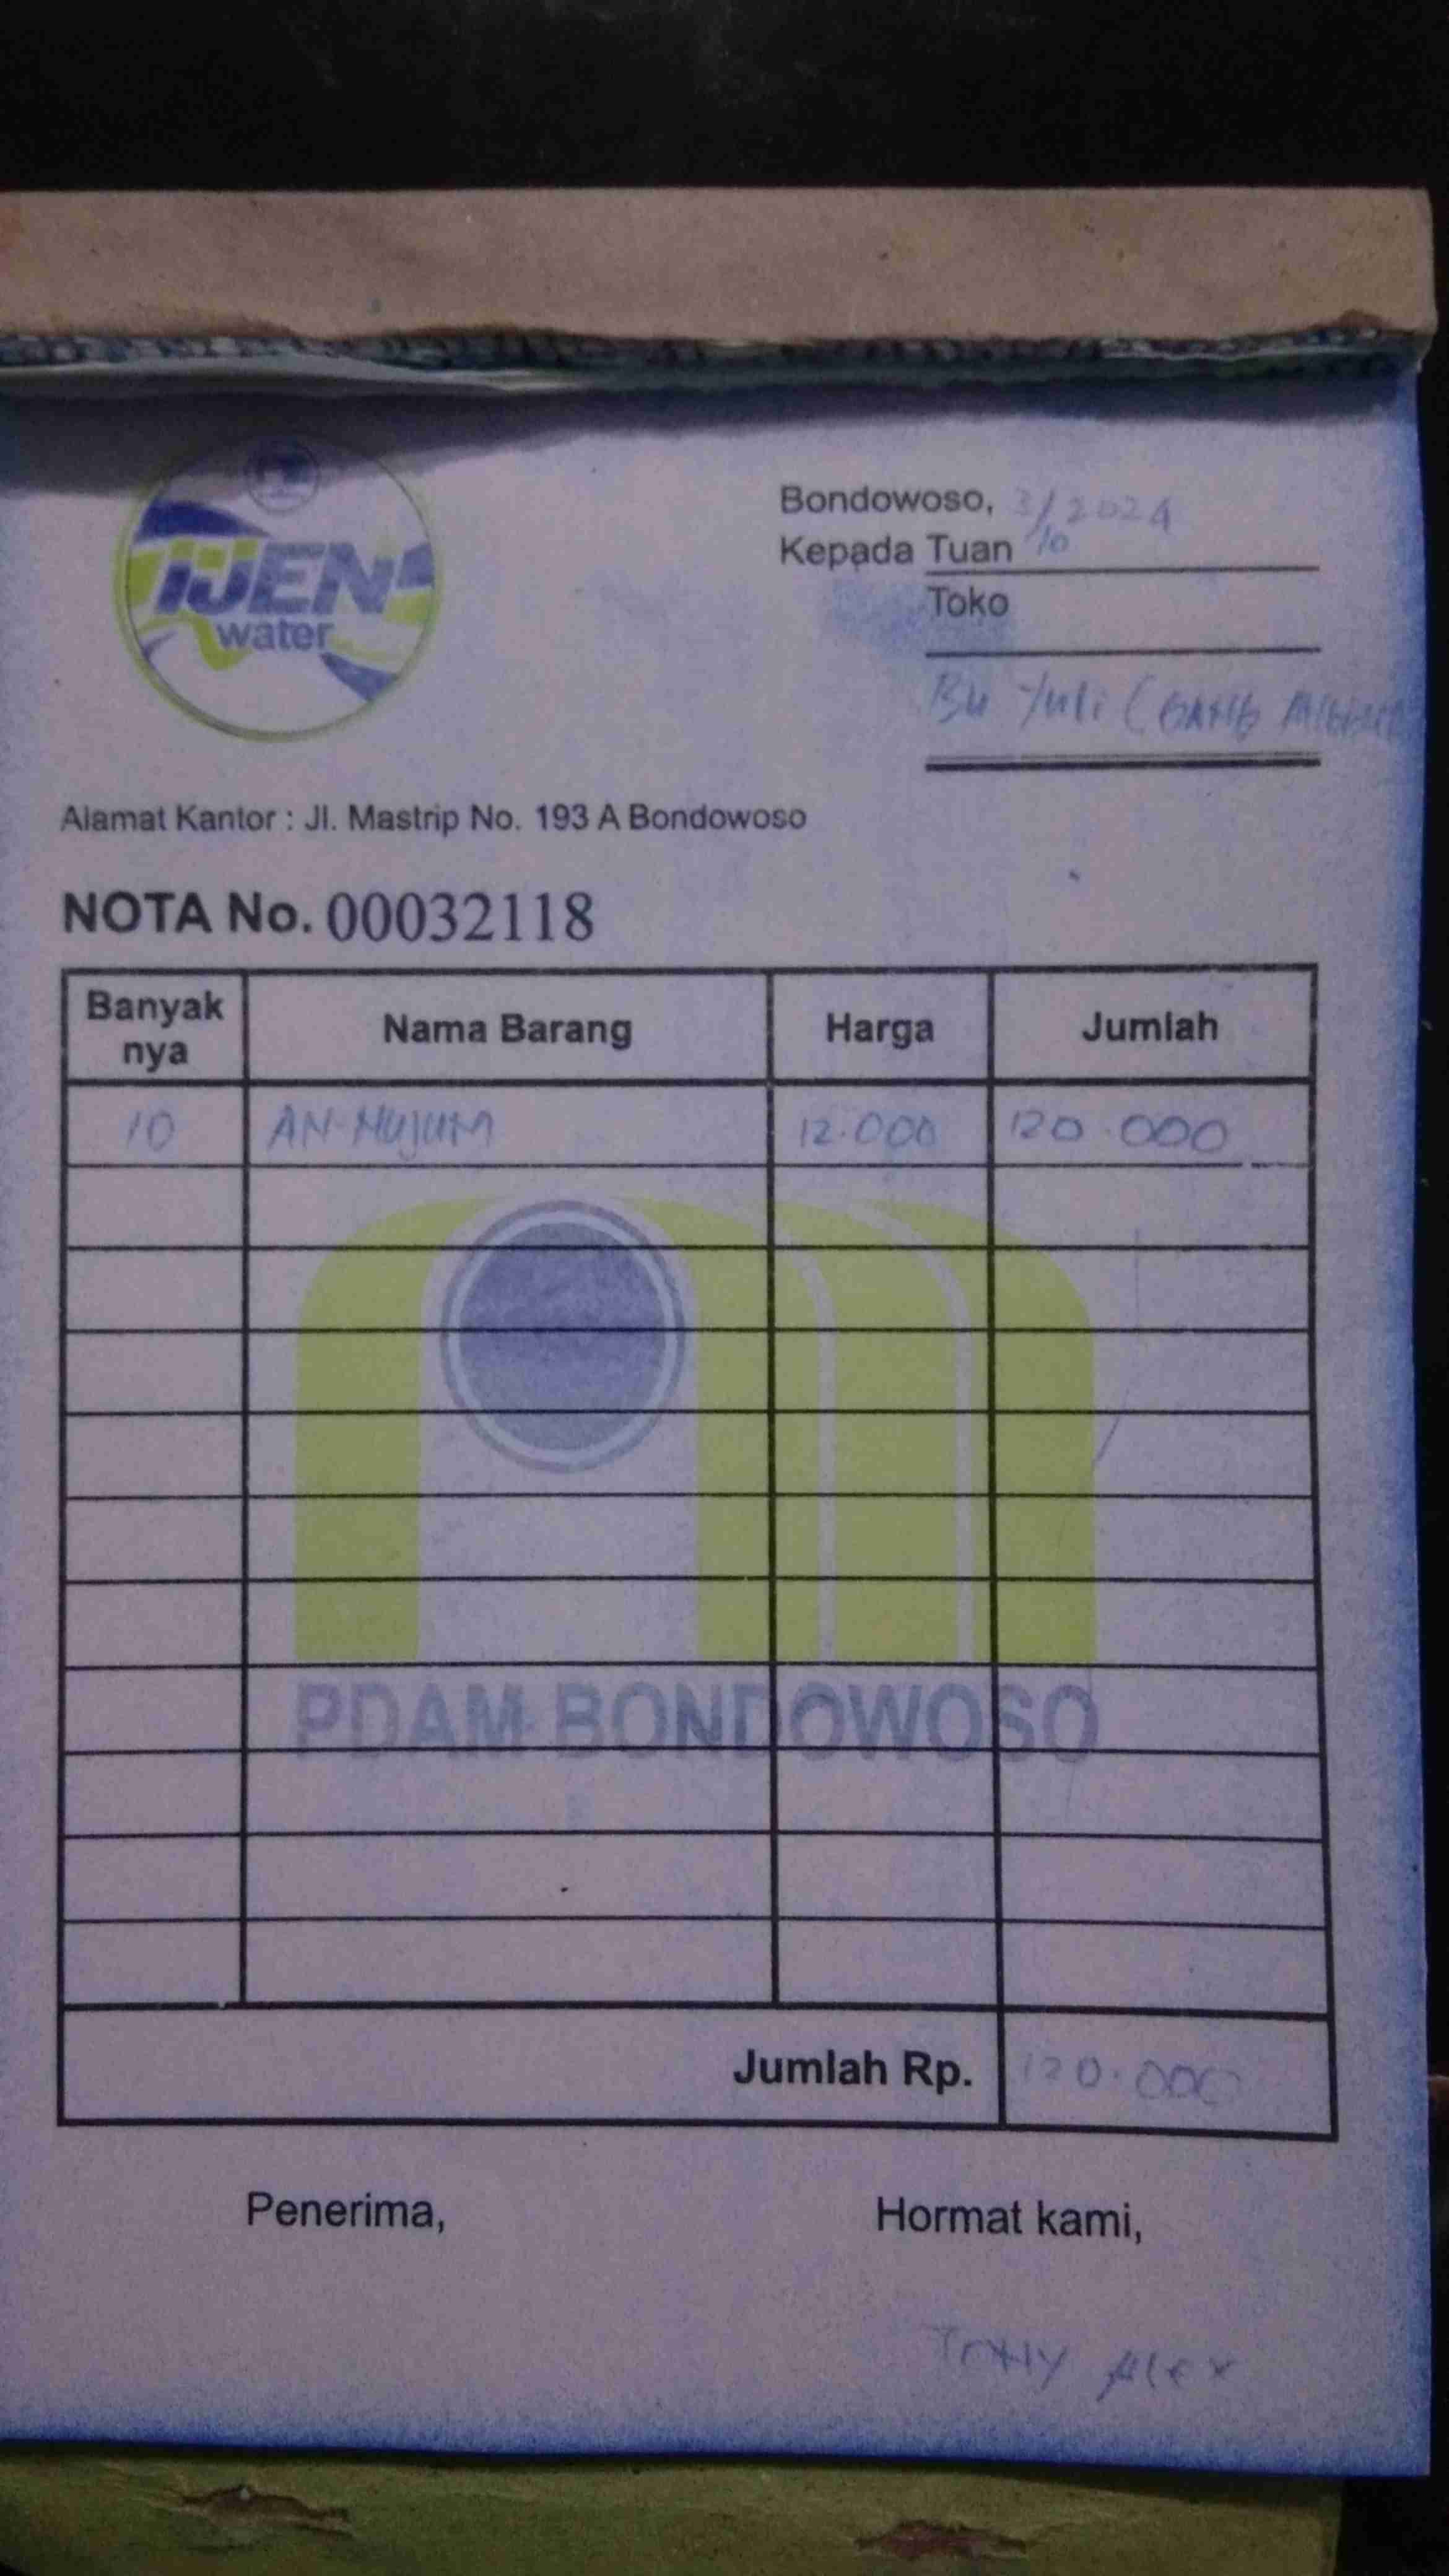 IJEN
water
Bondowoso, 3/10 2024
Kepada Tuan
Toko
Bu Yuli (GANG
Alamat Kantor : Jl. Mastrip No. 193 A Bondowoso
NOTA No. 00032118
Banyak nya Nama Barang Harga Jumlah
10 AN-NUJUM 12.000 120.000
PDAM BONDOWOSO
Jumlah Rp. 120.000
Penerima, Hormat kami,
Tony Alex